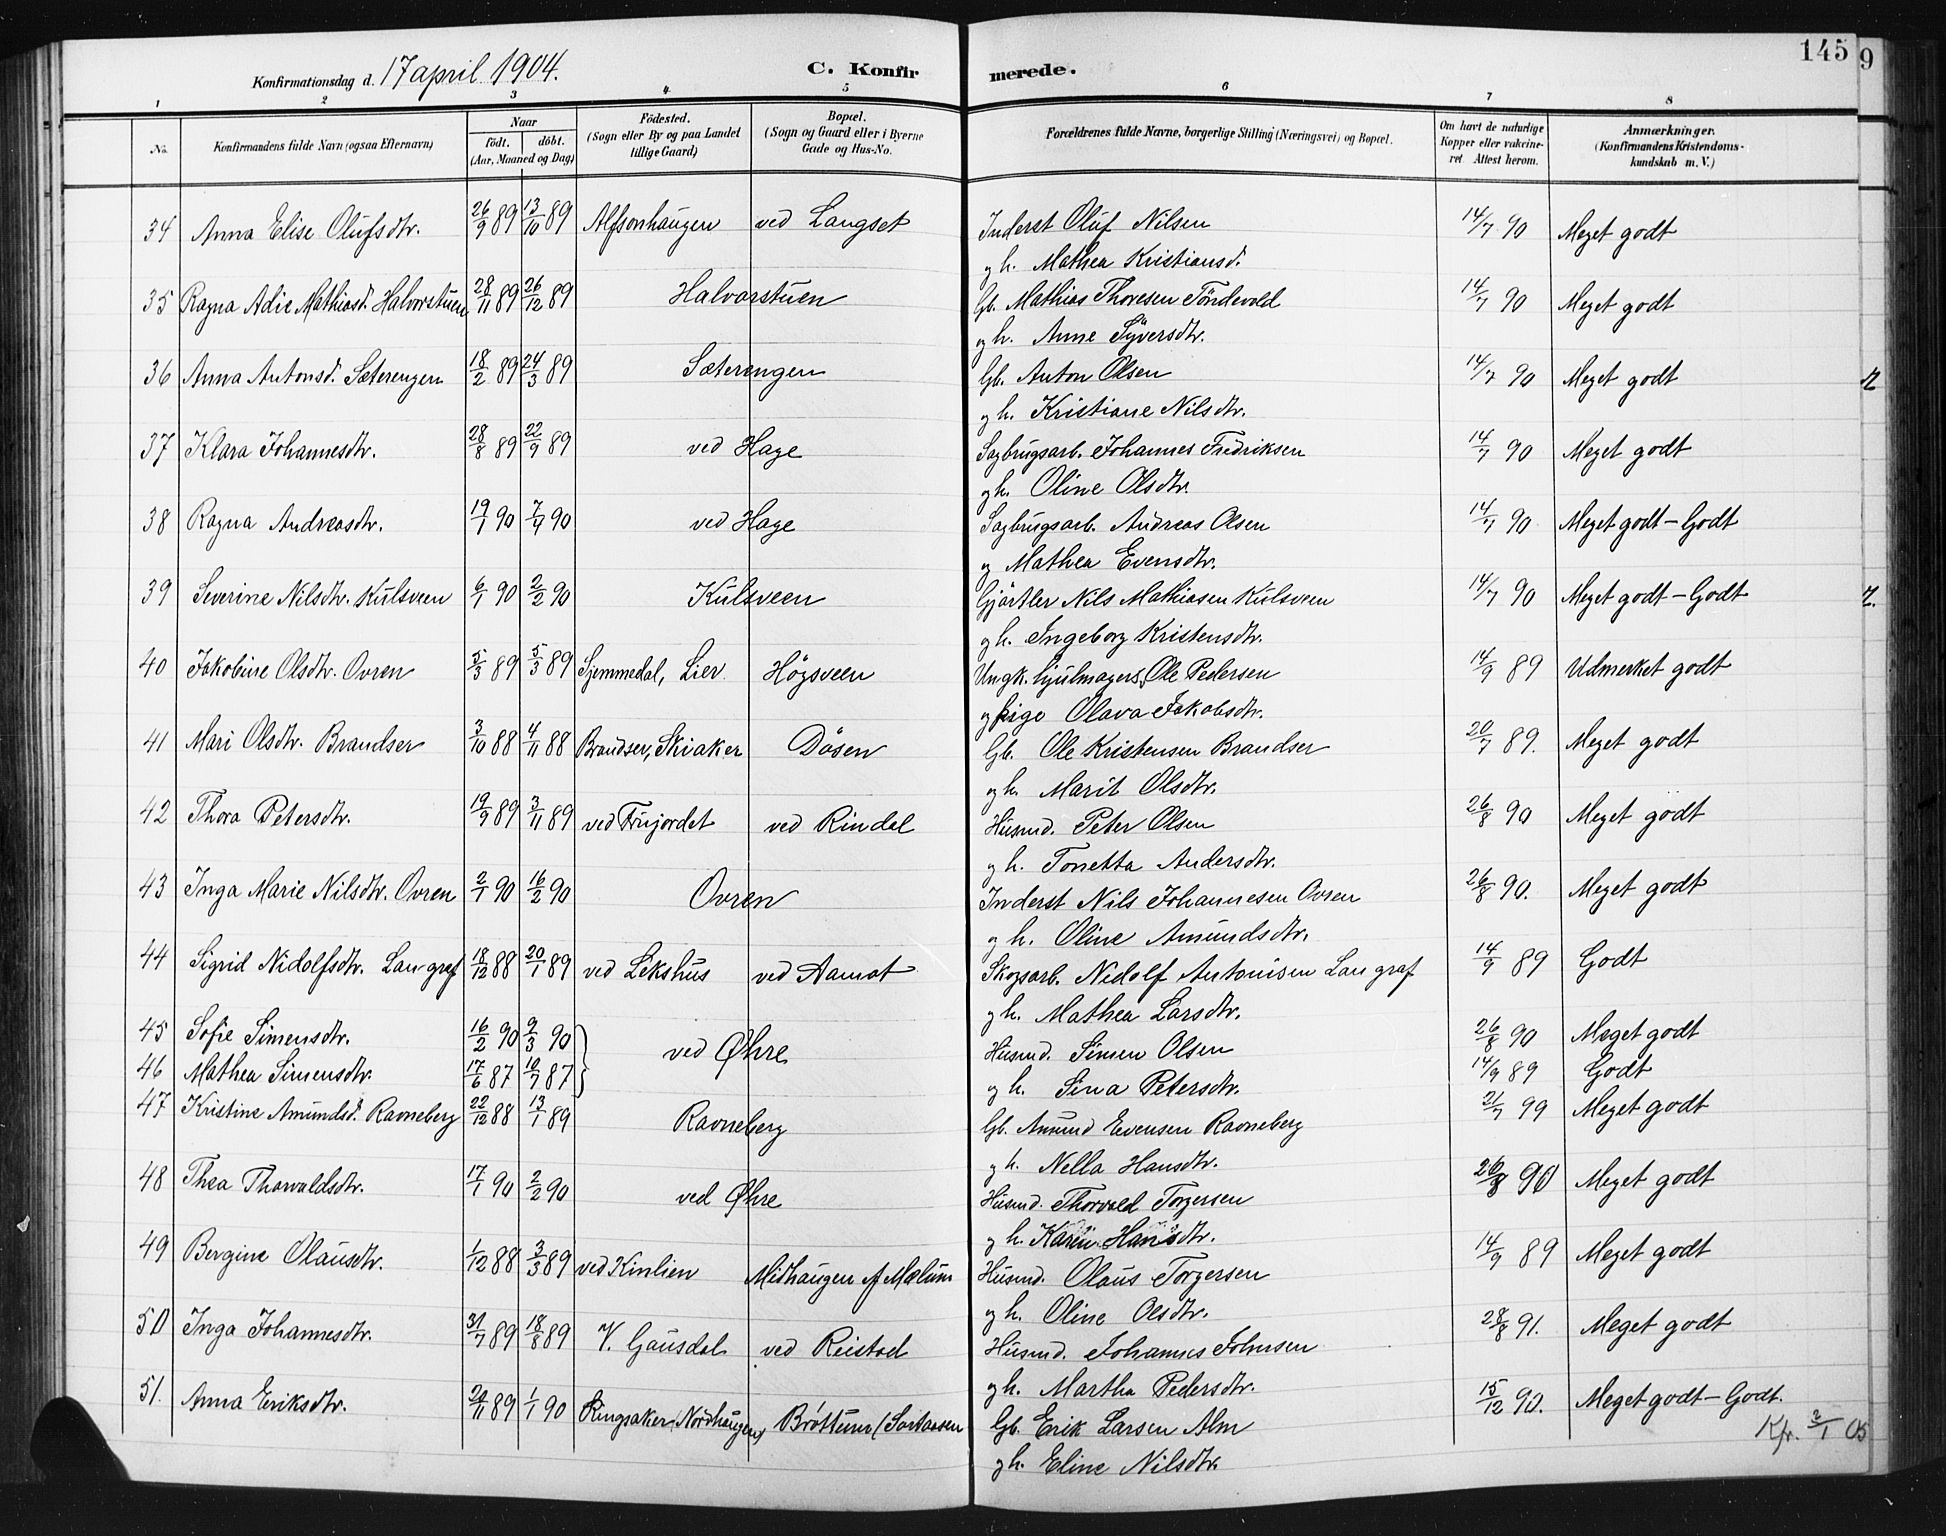 145
9
Konfirmationsdag d. 17 april 1904.
C. Konfirmerede.
1 2 3 4 5 6 7 8
No. Konfirmandens fulde Navn (ogsaa Efternavn) Naar födt. döbt. (Aar, Maaned og Dag) Födested. (Sogn eller By og paa Landet tillige Gaard) Bopæl. (Sogn og Gaard eller i Byerne Gade og Hus-No. Forældrenes fulde Navne, borgerlige Stilling (Næringsvei) og Bopæl. Om havt de naturlige Kopper eller vakcineret. Attest herom. Anmærkninger. (Konfirmandens Kristendomskundskab m. V.)
34 Anna Elise Olufsdtr. 26/9 89 13/10 89 Alfsonhaugen ved Langset Inderst Oluf Nilsen 14/7 90 Meget godt
og h. Mathea Kristiansd.
35 Ragna Adie Mathiasd. Halvorstuen 28/11 89 26/12 89 Halvorstuen Gb. Mathias Thoresen Töndevold 14/7 90 Meget godt
og h. Anne Syversdtr.
36 Anna Antonsd. Sæterengen 18/2 89 24/3 89 Sæterengen Gb. Anton Olsen 14/7 90 Meget godt
og h. Kristiane Nilsdtr.
37 Klara Johannesdtr. 28/8 89 22/9 89 ved Hage Sagbrugsarb. Johannes Fredriksen 14/7 90 Meget godt
og h. Oline Olsdtr.
38 Ragna Andreasdtr. 19/1 90 7/4 90 ved Hage Sagbrugsarb. Andreas Olsen 14/7 90 Meget godt - Godt
og Mathea Evensdtr.
39 Severine Nilsdtr. Kulsveen 6/1 90 2/2 90 Kulsveen Gjörtler Nils Mathiasen Kulsveen 14/7 90 Meget godt - Godt
og h. Ingeborg Kristensdtr.
40 Jakobine Olsdtr. Ovren 5/3 89 5/3 89 Sjemmedal, Lier Högsveen Ungk. hjulmagers. Ole Pedersen 14/9 89 Udmerket godt
og pige Olava Jakobsdtr.
41 Mari Olsdtr. Brandser 3/10 88 4/11 88 Brandser, Skiaker Dösen Gb. Ole Kristensen Brandser 20/7 89. Meget godt
og h. Marit Olsdtr.
42 Thora Petersdtr. 19/9 89 3/11 89 ved Frujordet ved Rindal Husmd. Peter Olsen 26/8 90 Meget godt
og h. Tonetta Andersdtr.
43 Inga Marie Nilsdtr. Ovren 2/1 90 16/2 90 Ovren Inderst Nils Johannesen Ovren 26/8 90. Meget godt
og h. Oline Amundsdtr.
44 Sigrid Nidolfsdtr. Langraf 18/12 88 20/1 89 ved Lekshus ved Aamot Skogsarb. Nidolf Antonisen Langraf 14/9 89 Godt
og h. Mathea Larsdtr.
45 Sofie Simensdtr. 16/2 90 9/3 90 ved Øhre Husmd. Simen Olsen 26/8 90 Meget godt
46 Mathea Simensdtr. 17/6 87 10/7 87 og h. Sina Petersdtr. 14/9 89 Godt
47 Kristine Amundsd. Ravneberg 22/12 88 13/1 89 Ravneberg Gb. Amund Evensen Ravneberg 21/7 99 Meget godt
og h. Nella Hansdtr.
48 Thea Thorvaldsdtr. 17/1 90 2/2 90 ved Øhre Husmd. Thorvald Torgersen 26/8 90 Meget godt
og h. Karen Hansdtr.
49 Bergine Olausdtr. 1/12 88 3/3 89 ved Kinlien Midhaugen af Mælum Husmd. Olaus Torgersen 14/9 89 Meget godt
og h. Oline Olsdtr.
50 Inga Johannesdtr. 31/7 89 18/8 89 V. Gausdal ved Reistad Husmd. Johannes Johnsen 28/8 91. Meget godt
og h. Martha Pedersdtr.
51. Anna Eriksdtr. 29/11 89 1/1 90 Ringsaker (Nordhaugen) Bröttum Gb. Erik Larsen Alm 15/12 90. Meget godt - Godt.
og h. Eline Nilsdtr.
Kfr. 2/1 05